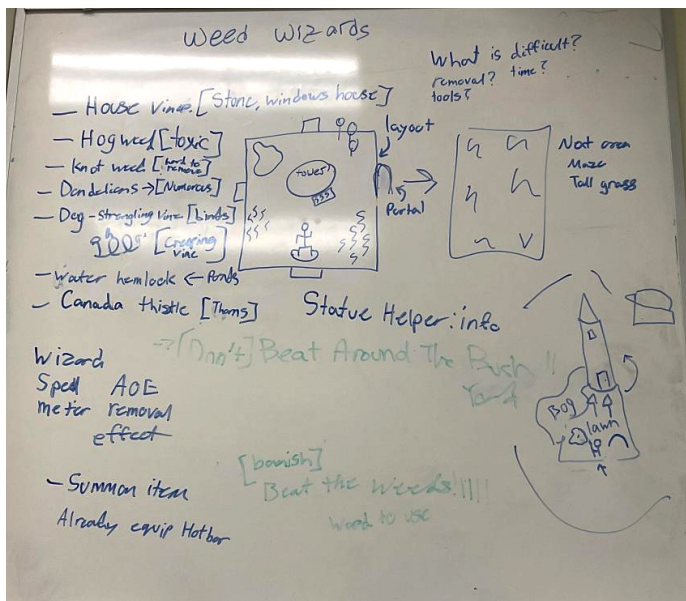 weed wizards
What is difficult?
removal? time?
tools?
— House vines [Stone, windows house]
— Hogweed [toxic]
— Knot weed [hard to remove]
— Dandelions → [Numerous]
— Dog-strangling vine [binds]
[Creeping vine]
— Water hemlock ← Ponds
— Canada thistle [Thorns]
tower
layout
Portal
Next area
Maze
Tall grass
Statue Helper: info
→ [Don't] Beat Around The Bush !!
Wizard
Spell AOE
meter removal
effect
Bog
lawn
[banish]
Beat the Weeds!!!!!
Word to use
— Summon item
Already equip Hotbar